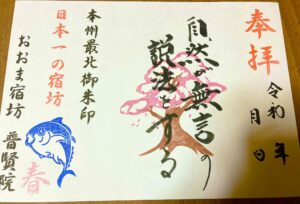 奉拝
令和 年
月 日
自然が無言の
説法をする
本州最北御朱印
日本一の宿坊
おおま宿坊
普賢院
春